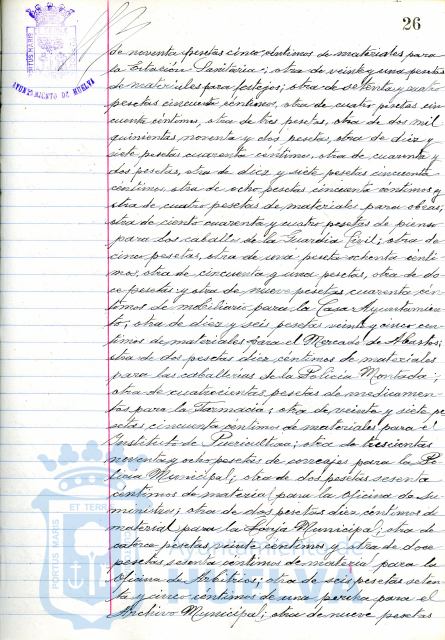 26
PORTUS MARIS
AYUNTAMIENTO DE HUELVA
de noventa pesetas cinco céntimos de materiales para
la Estación Sanitaria; otra de veinte y una pesetas
de materiales para festejos; otra de setenta y cuatro
pesetas cincuenta céntimos, otra de cuatro pesetas cin
cuenta céntimos, otra de tres pesetas, otra de dos mil
quinientas noventa y dos pesetas, otra de diez y
siete pesetas cuarenta céntimos, otra de cuarenta y
dos pesetas, otra de diez y siete pesetas cincuenta
céntimos, otra de ocho pesetas cincuenta céntimos y
otra de cuatro pesetas de materiales para obras;
otra de ciento cuarenta y cuatro pesetas de pienso
para los caballos de la Guardia Civil; otra de
cinco pesetas, otra de una peseta ochenta cénti
mos, otra de cincuenta y una pesetas, otra de do
ce pesetas y otra de nueve pesetas cuarenta cén
timos de mobiliario para la Casa Ayuntamien
to; otra de diez y seis pesetas veinte y cinco cén
timos de materiales para el Mercado de Abastos;
otra de dos pesetas diez céntimos de materiales
para las caballerías de la Policía Montada;
otra de cuatrocientas pesetas de medicamen
tos para la Farmacia; otra de veinte y siete pe
setas cincuenta céntimos de materiales para el
Instituto de Puericultura; otra de trescientas
noventa y ocho pesetas de correajes para la Po
licía Municipal; otra de dos pesetas sesenta
céntimos de material para la Oficina de Su
ministro; otra de dos pesetas diez céntimos de
material para la Lonja Municipal; otra de
catorce pesetas veinte céntimos y otra de doce
pesetas sesenta céntimos de material para la
Oficina de Arbitrios; otra de seis pesetas seten
ta y cinco céntimos de una percha para el
Archivo Municipal; otra de nueve pesetas
ET TERRÆ
PORTUS MARIS
Ayuntamiento de
HUELVA